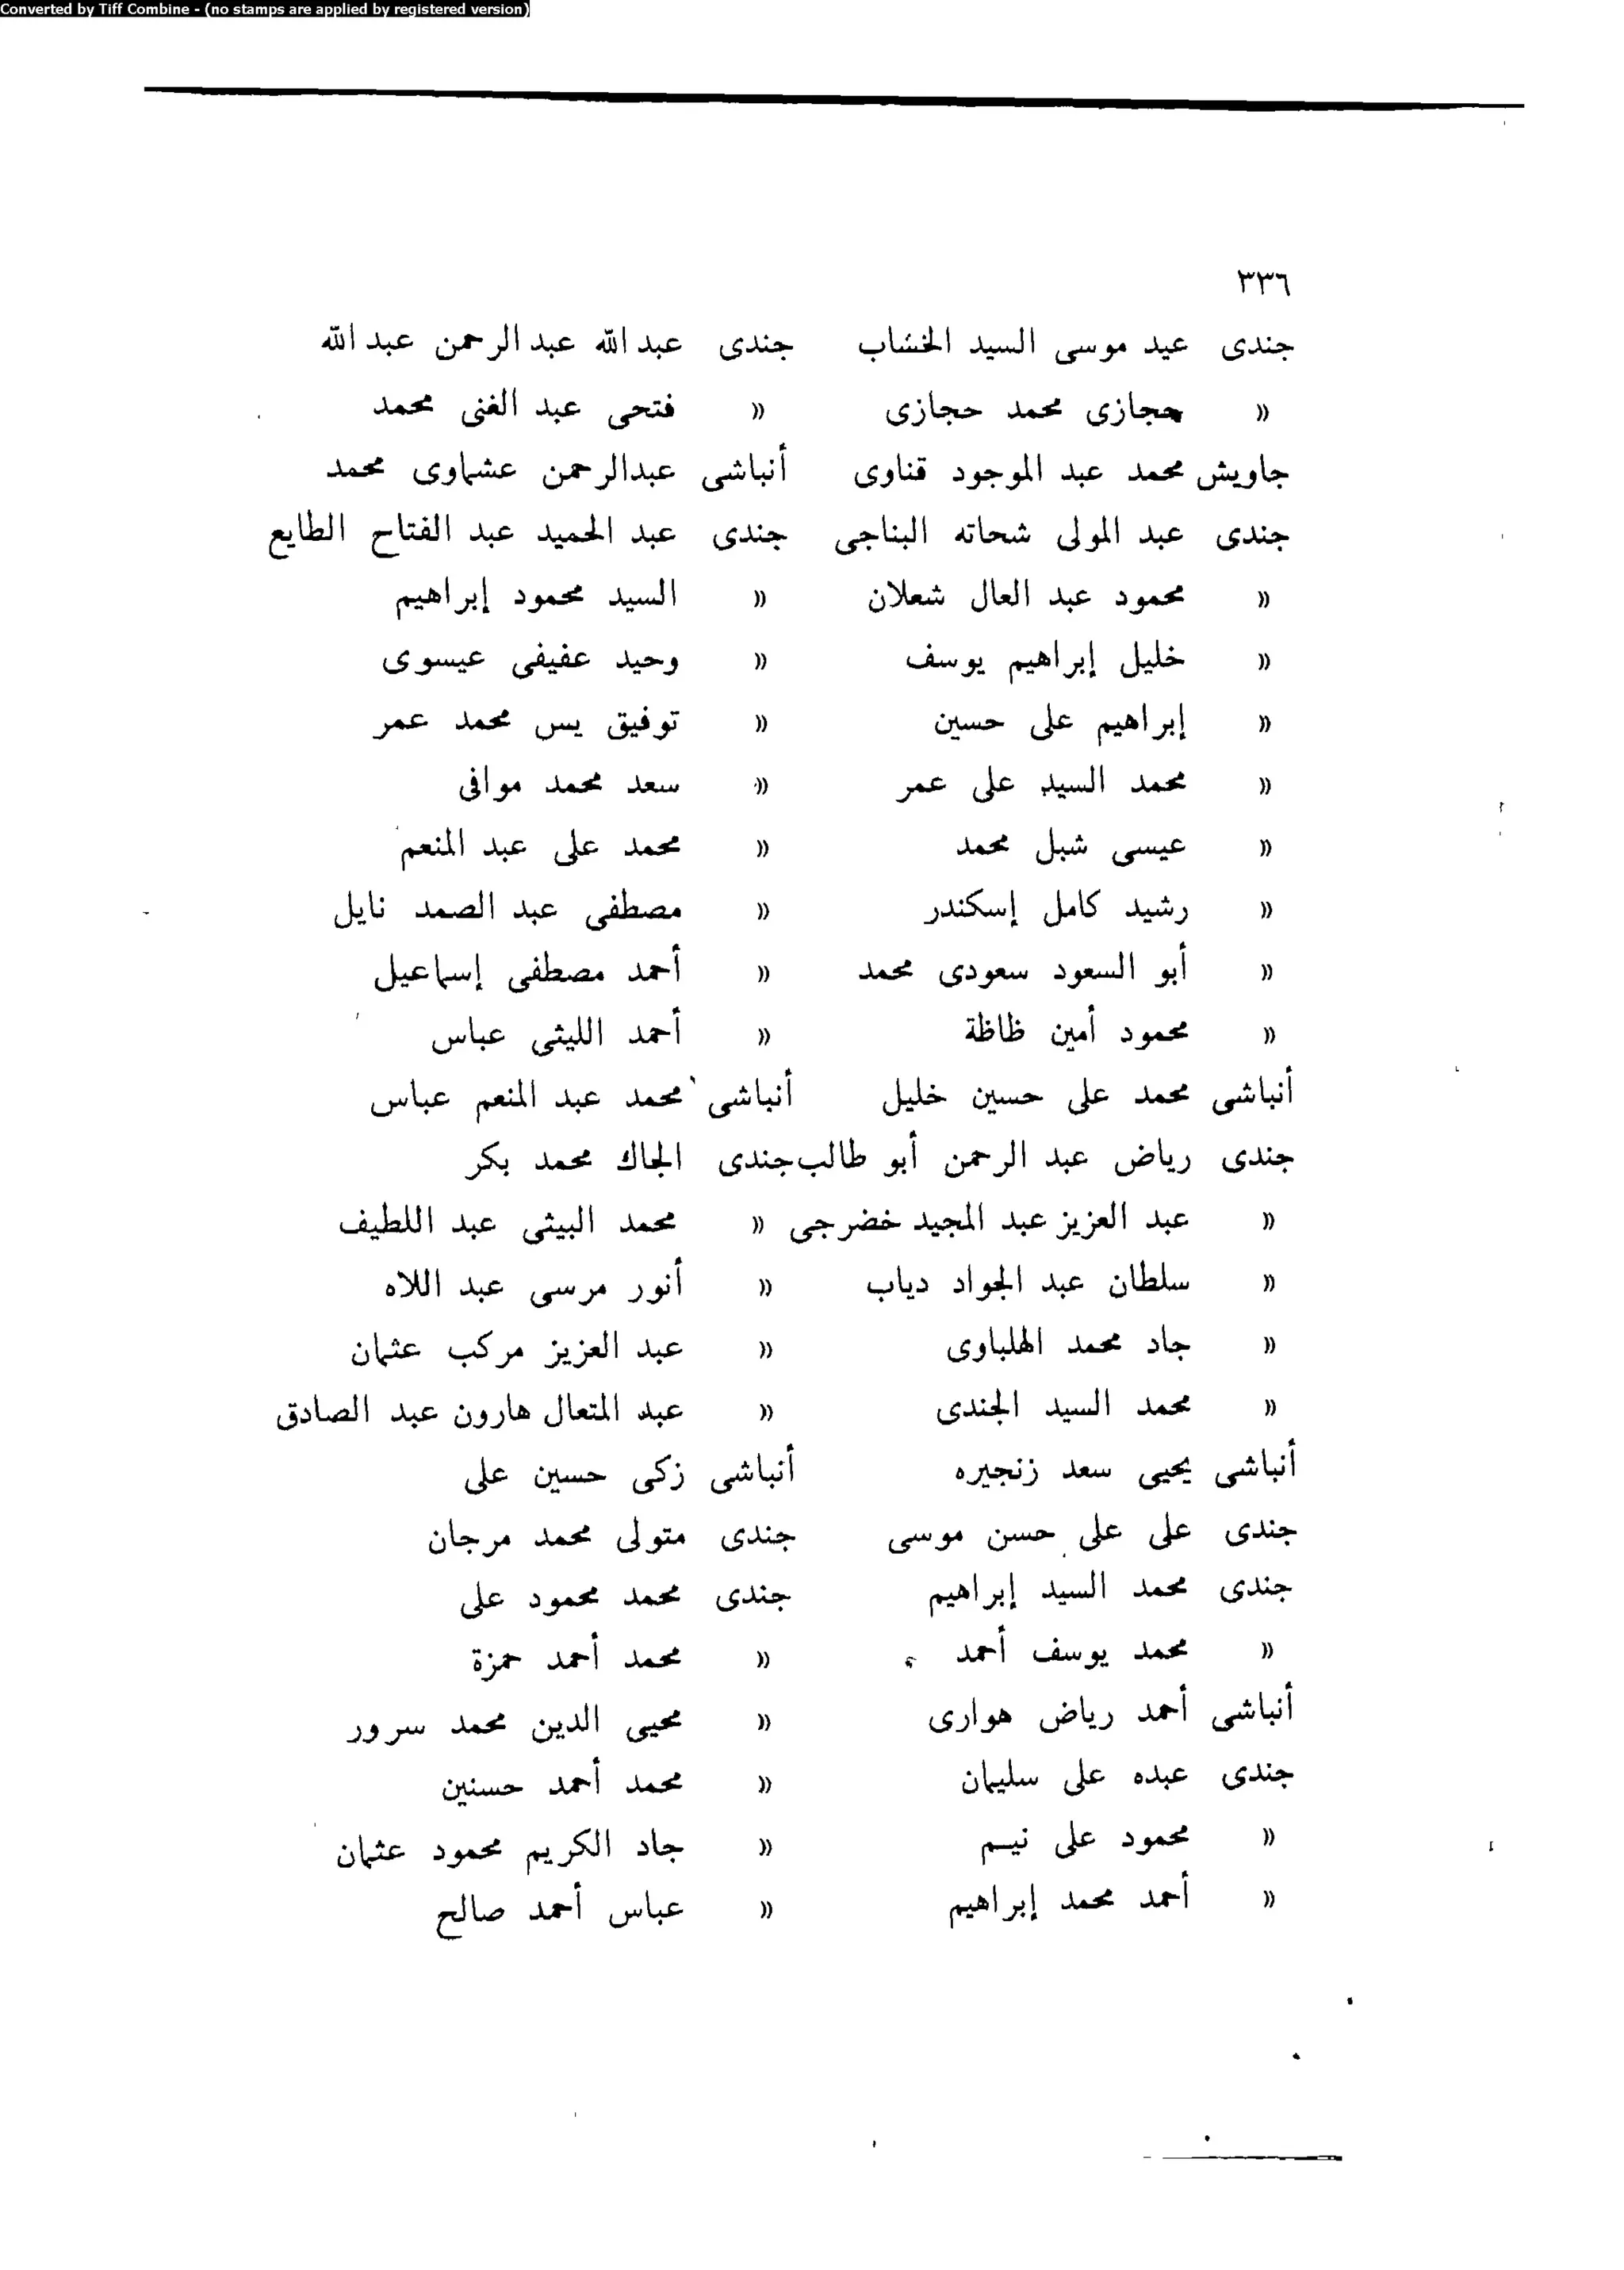 Converted by Tiff Combine - (no stamps are applied by registered version)
٣٣٦
جندى عيد موسى السيد الخشاب جندى عبد الله عبد الرحمن عبد الله
» حجازى محمد حجازى » فتحى عبد الغنى محمد
جاويش محمد عبد الموجود قناوى أنباشى عبدالرحمن عشماوى محمد
جندى عبد المولى شحاته البناجى جندى عبد الحميد عبد الفتاح الطايع
» محمود عبد العال شعلان » السيد محمود إبراهيم
» خليل إبراهيم يوسف » وحيد عفيفى عيسوى
» إبراهيم على حسين » توفيق يس محمد عمر
» محمد السيد على عمر » سعد محمد موافى
» عيسى شبل محمد » محمد على عبد المنعم
» رشيد كامل إسكندر » مصطفى عبد الصمد نايل
» أبو السعود سعودى محمد » أحمد مصطفى إسماعيل
» محمود أمين ظاظة » أحمد الليثى عباس
أنباشى محمد على حسين خليل أنباشى محمد عبد المنعم عباس
جندى رياض عبد الرحمن أبو طالب جندى الجاك محمد بكر
» عبد العزيز عبد المجيد خضرجى » محمد البيثى عبد اللطيف
» سلطان عبد الجواد دياب » أنور مرسى عبد اللاه
» جاد محمد الهلباوى » عبد العزيز مركب عثمان
» محمد السيد الجندى » عبد المتعال هارون عبد الصادق
أنباشى يحيى سعد زنجيره أنباشى زكى حسين على
جندى على على حسن موسى جندى متولى محمد مرجان
جندى محمد السيد إبراهيم جندى محمد محمود على
» محمد يوسف أحمد » محمد أحمد حمزة
أنباشى أحمد رياض هوارى » محيى الدين محمد سرور
جندى عبده على سليمان » محمد أحمد حسنين
» محمود على نيم » جاد الكريم محمود عثمان
» أحمد محمد إبراهيم » عباس أحمد صالح